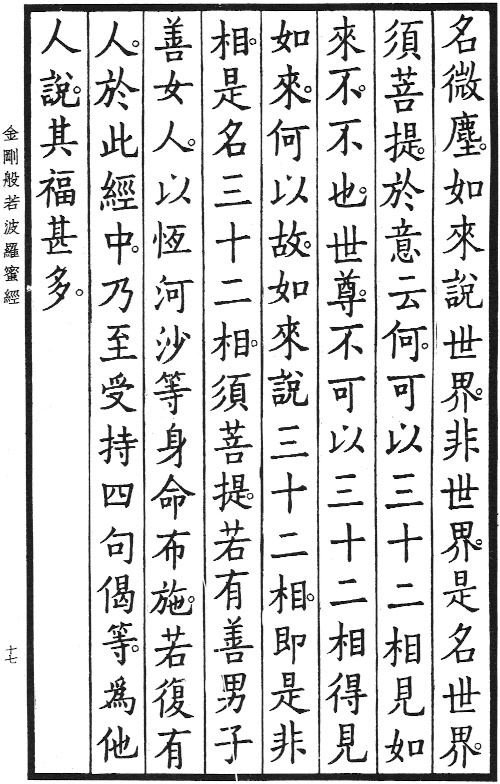 名微塵。如來說世界。非世界。是名世界。
須菩提。於意云何。可以三十二相見如
來不。不也。世尊。不可以三十二相得見
如來。何以故。如來說三十二相。即是非
相。是名三十二相。須菩提。若有善男子
善女人。以恆河沙等身命布施。若復有
人。於此經中。乃至受持四句偈等。爲他
人說。其福甚多。
金剛般若波羅蜜經
十七